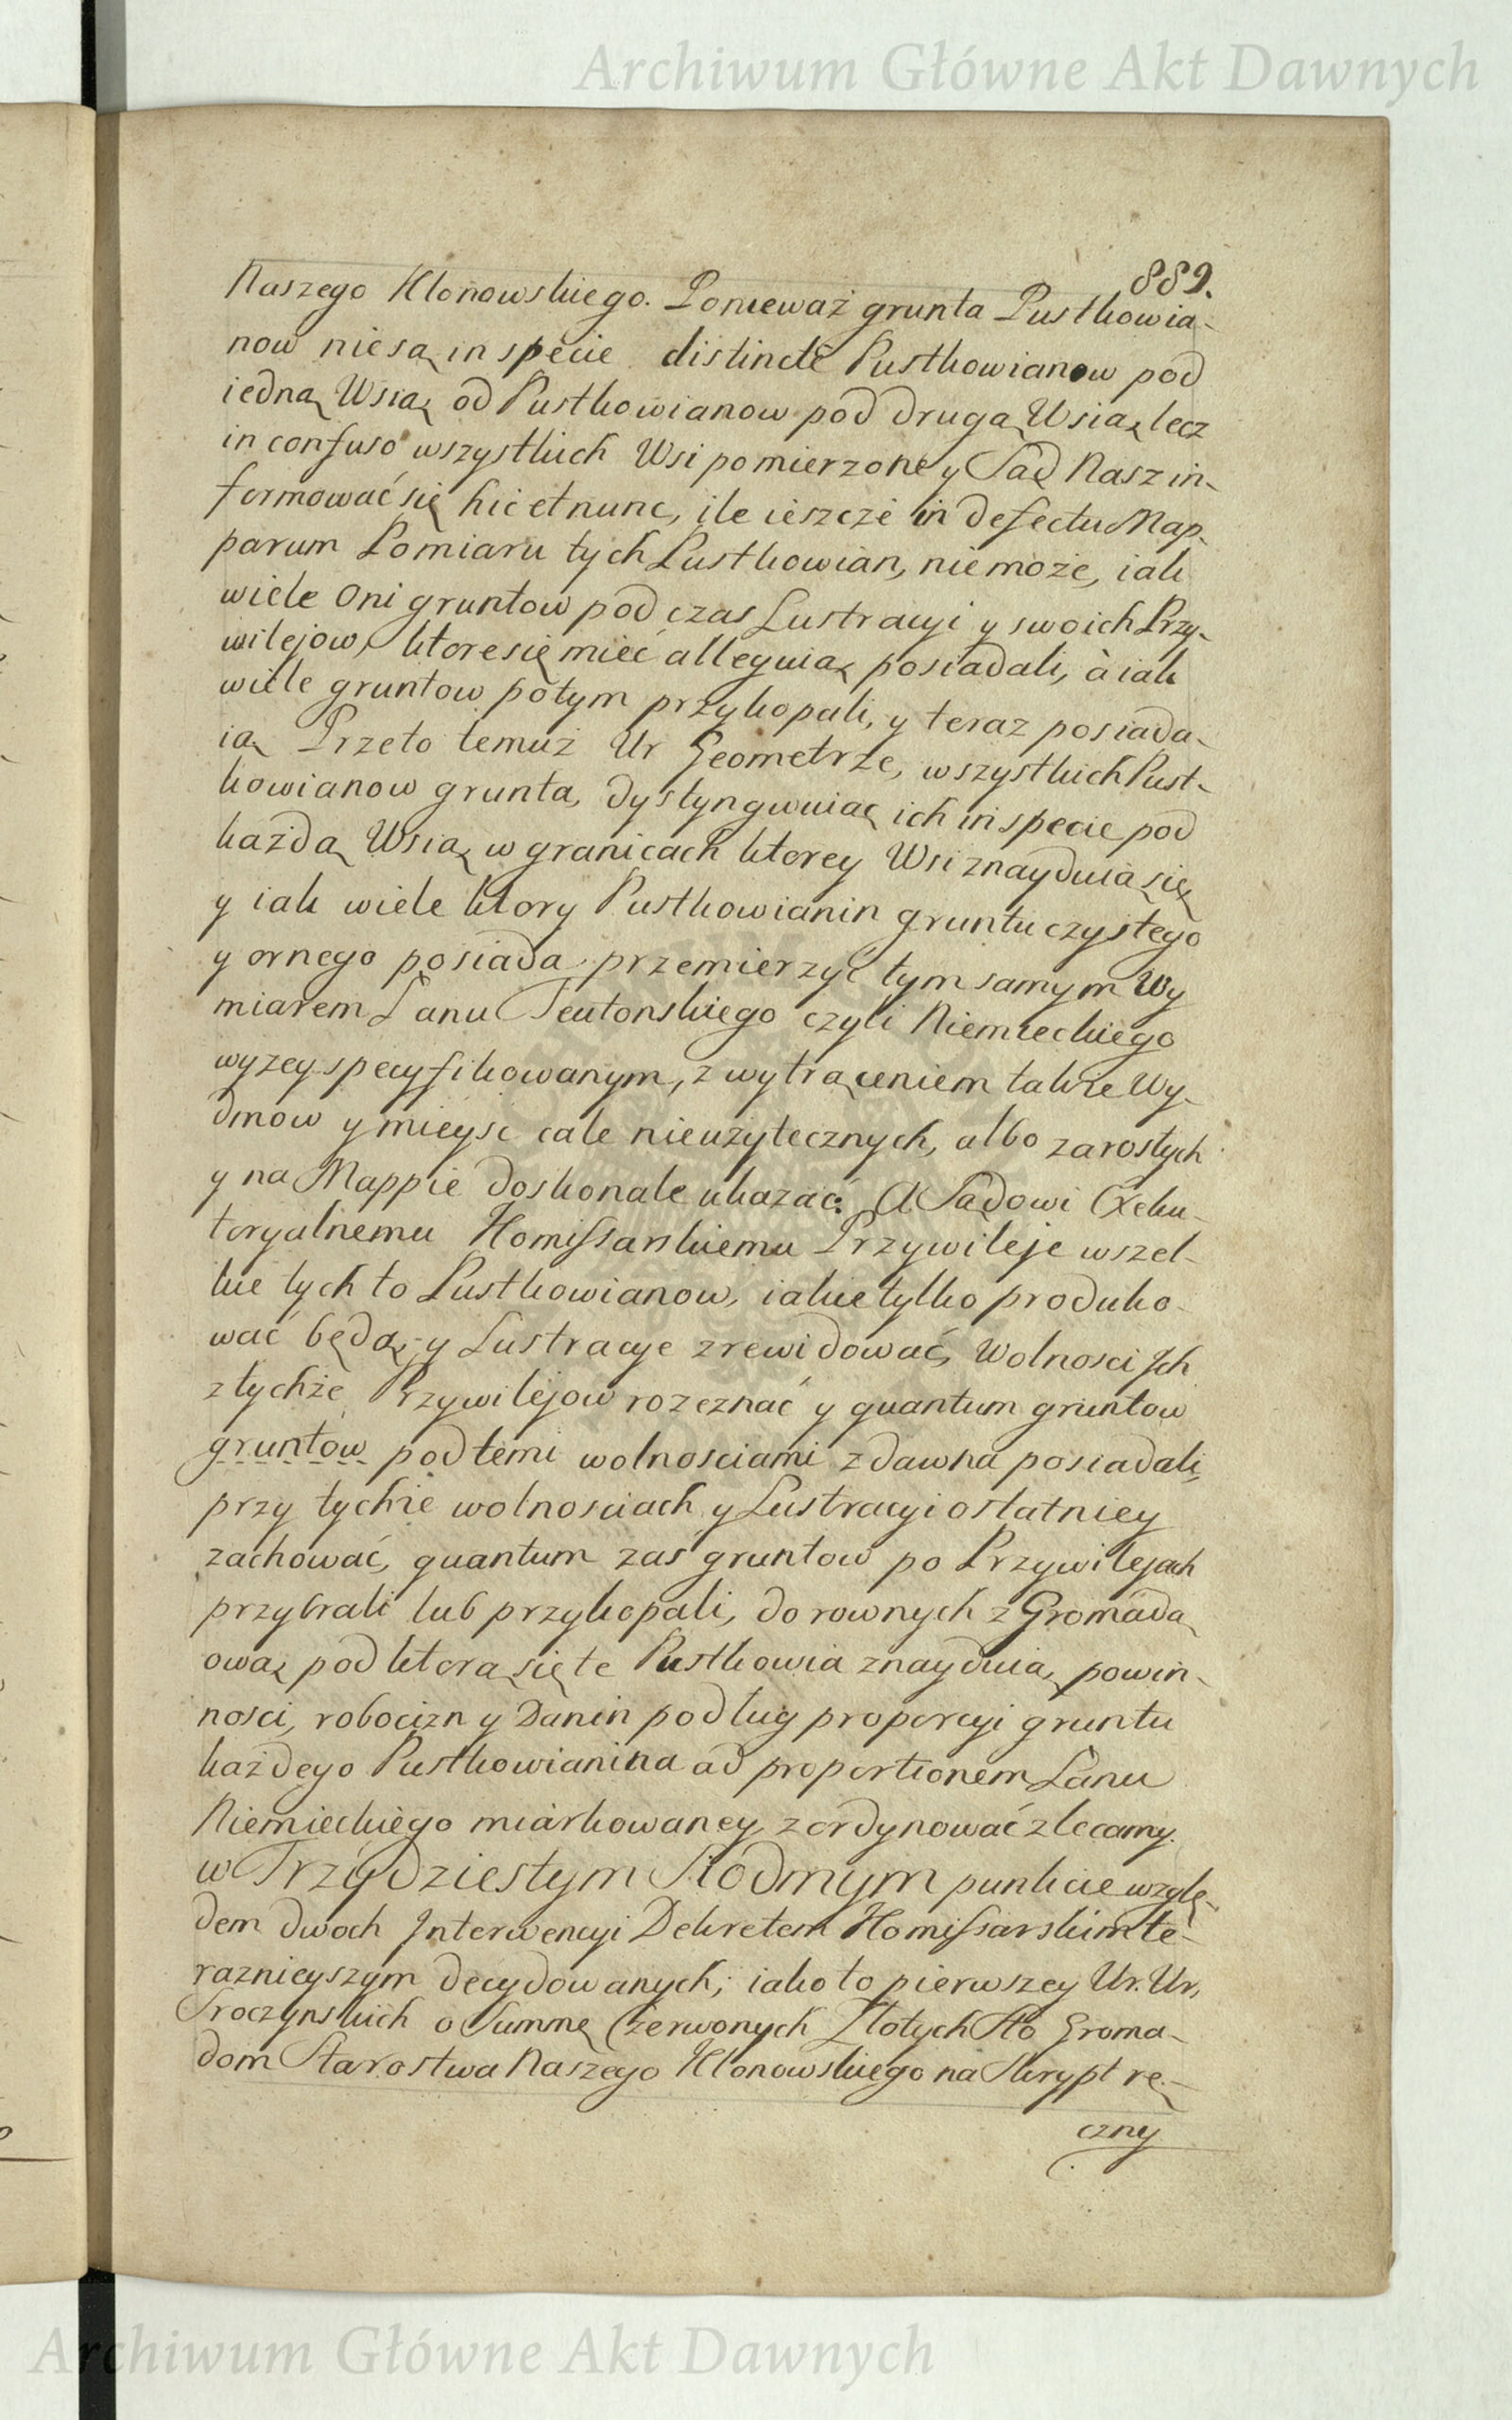 Archiwum Główne Akt Dawnych
889.
Naszego Klonowskiego. Ponieważ grunta Pustkowia-
now niesą in specie distincte Pustkowianow pod
iedną Wsią od Pustkowianow pod drugą Wsią, lecz
in confuso wszystkich Wsi pomierzone y Sąd Nasz in-
formować się hic et nunc, ile ieszcze in defectu Map-
parum Pomiaru tych Pustkowian, niemoże, iak
wiele oni gruntow pod czas Lustracyi y swoich Przy-
wilejow, ktore się mieć alleguią posiadali, à iak
wiele gruntow potym przykopali, y teraz posiada-
ią Przeto temuż Ur Geometrze, wszystkich Pust-
kowianow grunta, dystyngwuiąc ich in specie pod
każdą Wsią, w granicach ktorey Wsi znayduią się
y iak wiele ktory Pustkowianin gruntu czystego
y ornego posiada przemierzyć tym samym Wy
miarem Łanu Teutonskiego czyli Niemieckiego
wyzey specyfikowanym, z wytrąceniem także Wy-
dmow y mieysc cale nieużytecznych, albo zarostych
y na Mappie doskonale ukazać: A Sądowi Exeku-
toryalnemu Kommissarskiemu Przywileje wszel-
kie tych to Pustkowianow, iakie tylko produko-
wać będą, y Lustracye zrewidować, Wolnosci Ich
z tychże Przywilejow rozeznać y quantum gruntow
gruntow pod temi wolnosciami zdawna posiadali,
przy tychże wolnosciach y Lustracyi ostatniey
zachować, quantum zaś gruntow po Przywilejach
przybrali lub przykopali, do rownych z Gromadą
ową, pod ktorą się te Pustkowia znayduią, powin-
nosci, robocizn y Danin podług proporcyi gruntu
każdego Pustkowianina ad proportionem Łanu
Niemieckiego miarkowaney zordynować zlecamy.
w Trzydziestym Siodmym punkcie wzglę-
dem dwoch Interwencyi Dekretem Kommissarskim te-
raznieyszym decydowanych; iako to pierwszey Ur. Ur.
Sroczynskich o Summę Czerwonych Złotych Sto Groma-
dom Starostwa Naszego Klonowskiego na Skrypt rę-
czny
Archiwum Główne Akt Dawnych